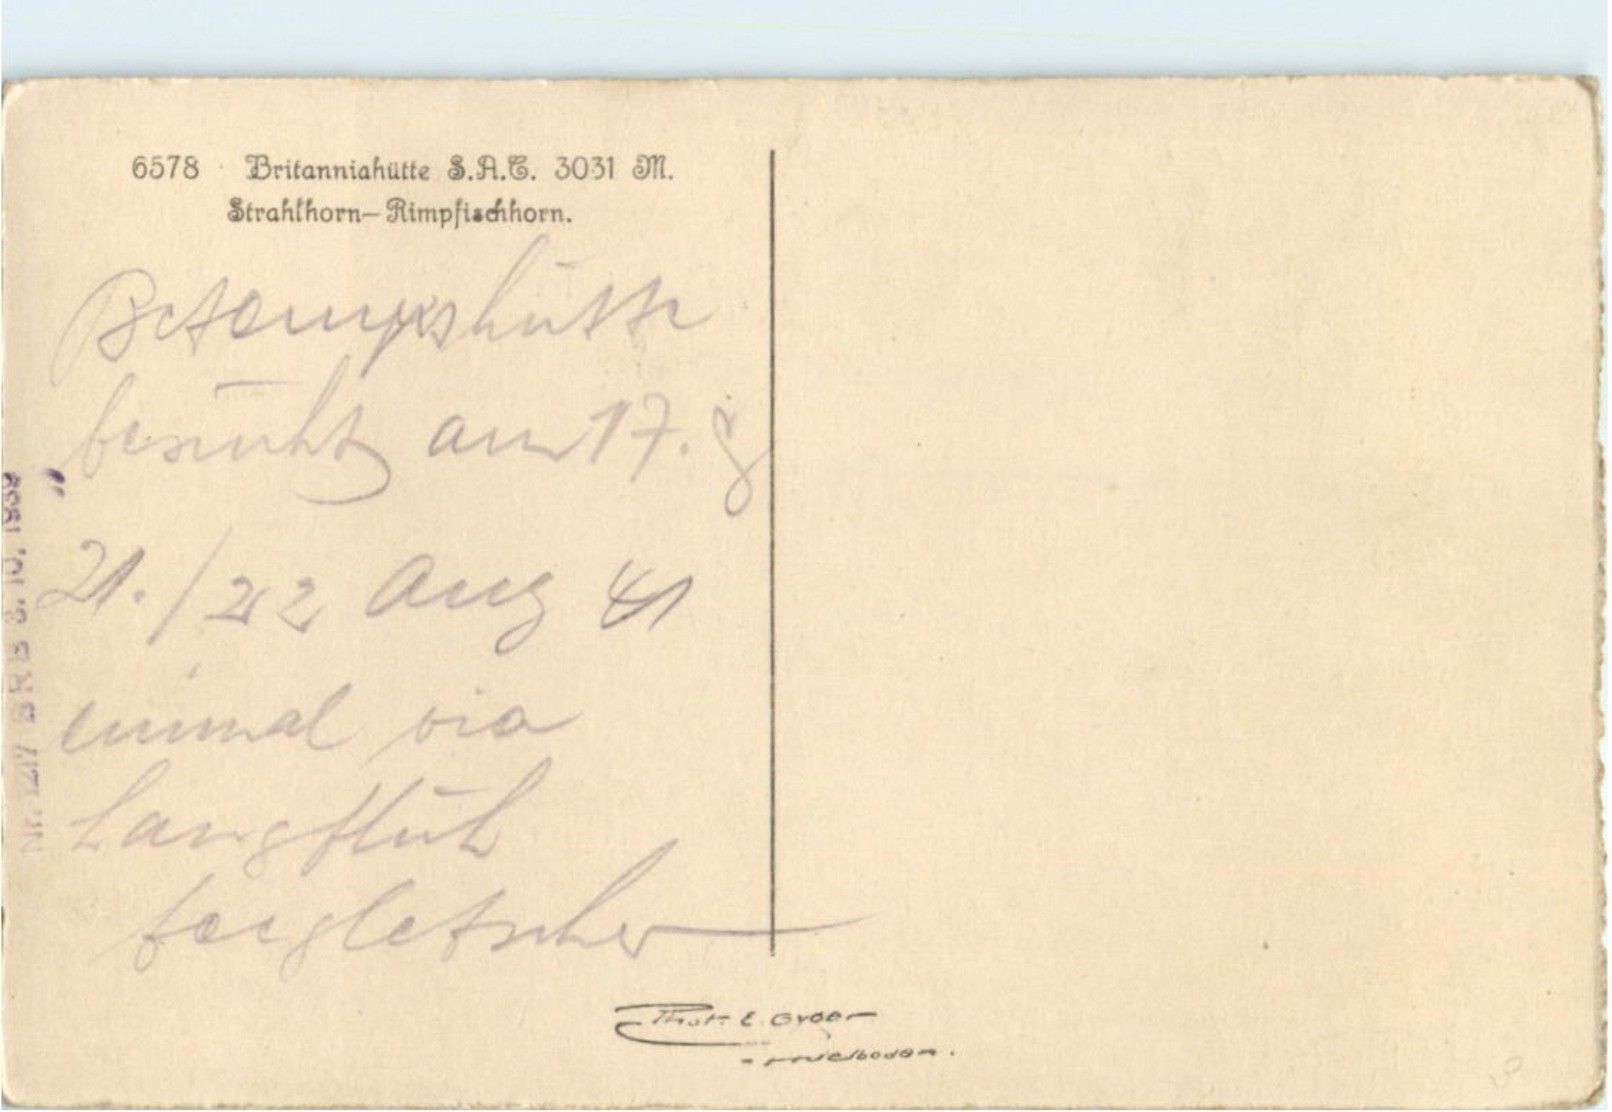 6578 Britanniahütte S.A.C. 3031 M.
Strahlhorn-Rimpfischhorn.
Betempshütte
besucht am 17. &
21./22 Aug 41
einmal via
Langflüh
feegletscher
Phot. E. Gyger
Adelboden.
Nr. 1217 BRB 3.10.1939